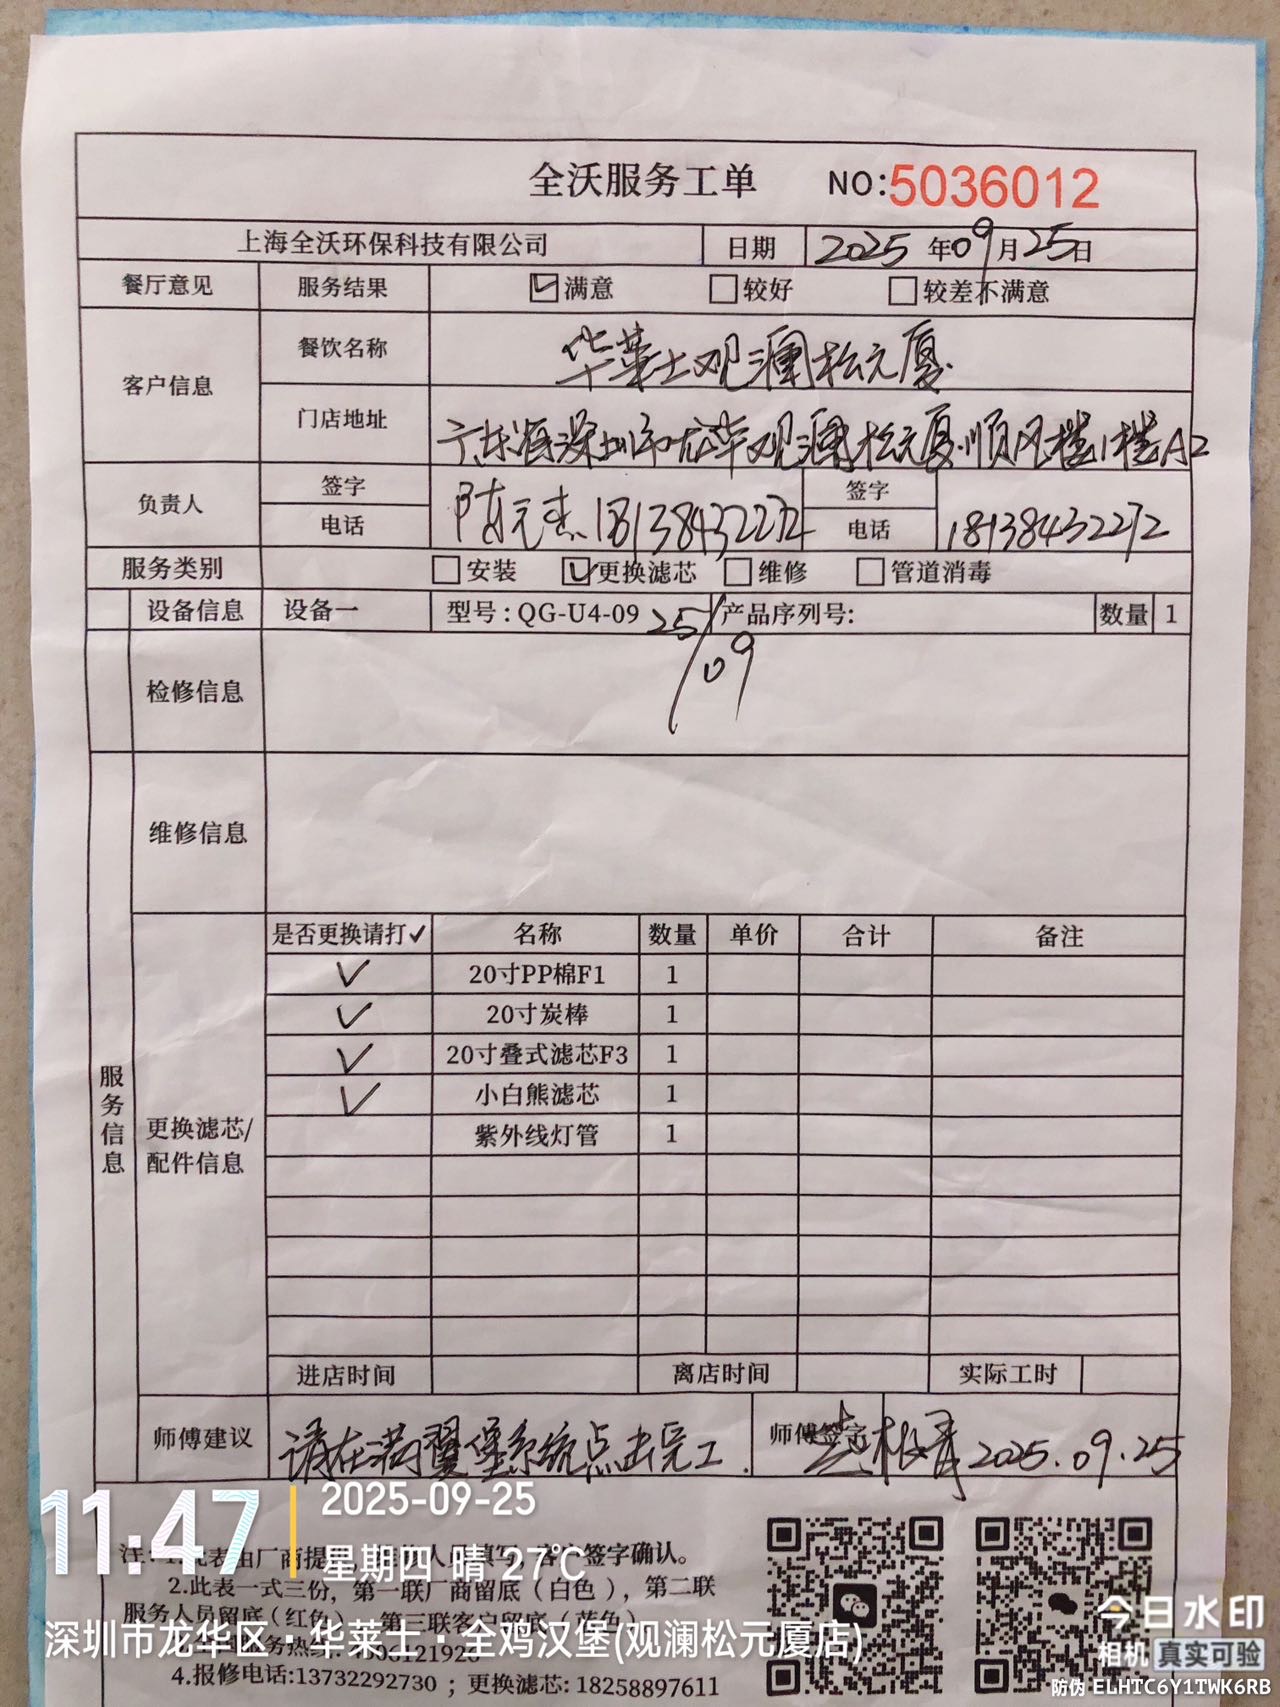 全沃服务工单 NO:5036012
上海全沃环保科技有限公司 日期 2025 年 09 月 25 日
餐厅意见 服务结果 ☑满意 □较好 □较差不满意
客户信息 餐饮名称 华莱士观澜松元厦
门店地址 广东省深圳市龙华观澜松元厦顺风楼1楼A2
负责人 签字 电话 陈元杰 18138432272 签字 电话 18138432272
服务类别 □安装 ☑更换滤芯 □维修 □管道消毒
设备信息 设备一 型号:QG-U4-09 产品序列号: 数量 1
25/09
检修信息
维修信息
服务信息
更换滤芯/配件信息
是否更换请打✓ 名称 数量 单价 合计 备注
✓ 20寸PP棉F1 1
✓ 20寸炭棒 1
✓ 20寸叠式滤芯F3 1
✓ 小白熊滤芯 1
紫外线灯管 1
进店时间 离店时间 实际工时
师傅建议 请在满翼堡系统点击完工. 师傅签字 2025.09.25
11:47 2025-09-25
星期四 晴 27℃
注: 填写,客户签字确认。
2.此表一式三份,第一联厂商留底(白色),第二联
服务人员留底(红色) 第三联客户留底(蓝色)
深圳市龙华区·华莱士·全鸡汉堡(观澜松元厦店)
4.报修电话:13732292730 ; 更换滤芯: 18258897611
今日水印
相机 真实可验
防伪 ELHTC6Y1TWK6RB